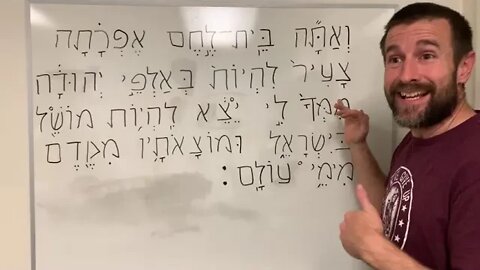 וְאַתָּ֞ה בֵּֽית־לֶ֣חֶם אֶפְרָ֗תָה
צָעִיר֙ לִֽהְיוֹת֙ בְּאַלְפֵ֣י יְהוּדָ֔ה
מִמְּךָ֙ לִ֣י יֵצֵ֔א לִֽהְי֥וֹת מוֹשֵׁ֖ל
בְּיִשְׂרָאֵ֑ל וּמוֹצָאֹתָ֥יו מִקֶּ֖דֶם
מִימֵ֥י עוֹלָֽם׃